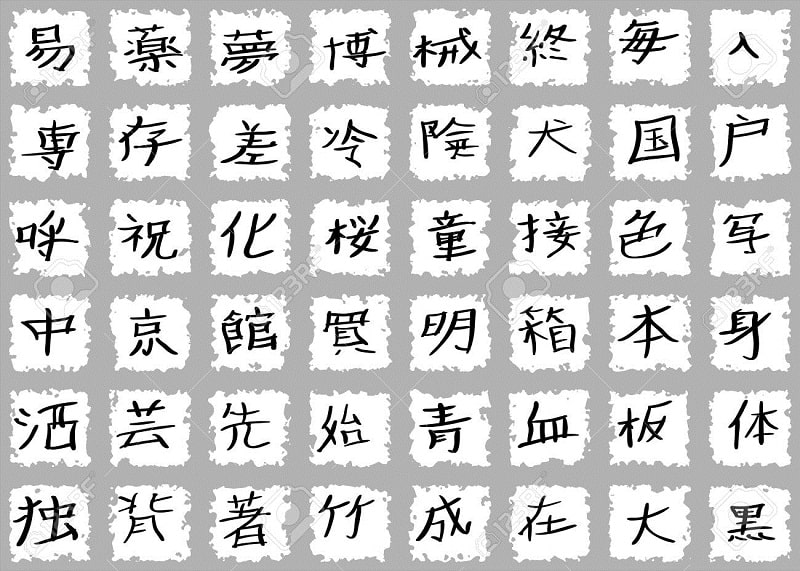 易 薬 夢 博 械 終 毎 入
専 存 差 冷 険 犬 国 戸
呼 祝 化 桜 童 接 色 写
中 京 館 買 明 箱 本 身
酒 芸 先 始 青 血 板 体
独 背 著 竹 成 在 大 黒
123RF